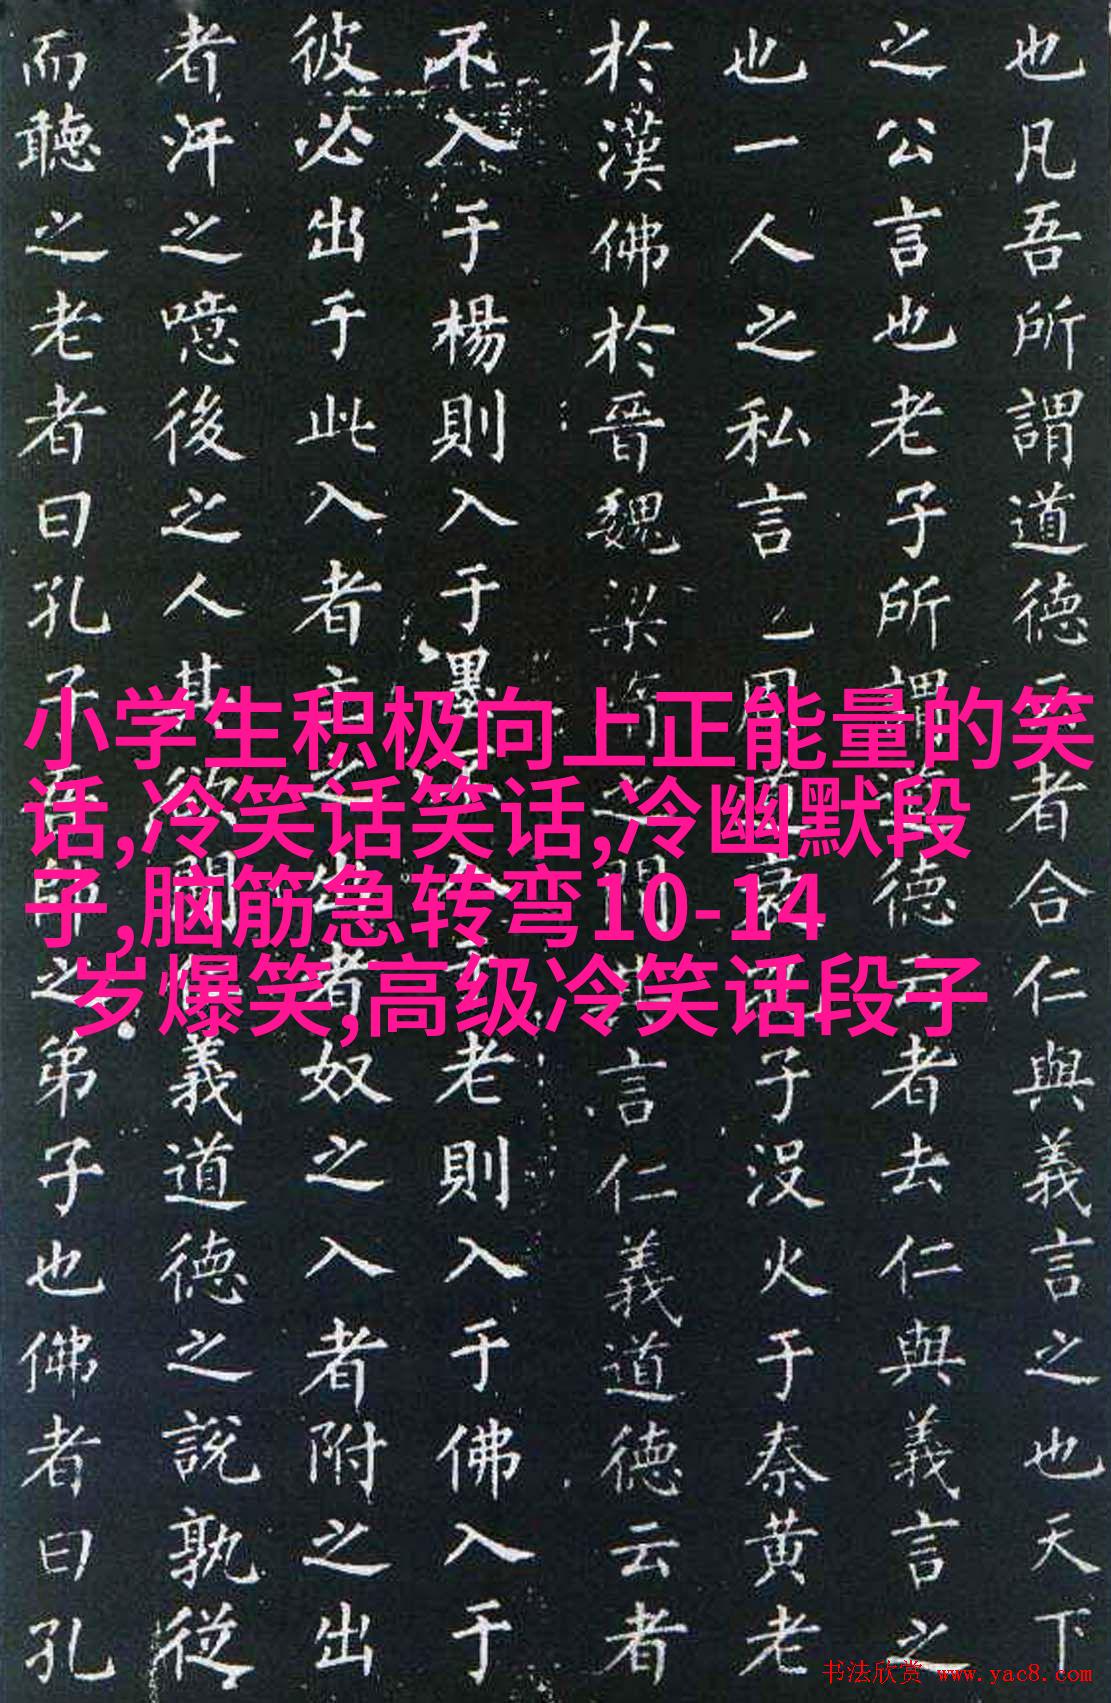 也凡吾所謂道德云者合仁與義言之也天下
之公言也老子所謂道德云者去仁與義言之
也一人之私言周道衰孔子没火于秦黄老
於漢佛於晉魏梁隋之間其言仁義道德云者
不入于楊則入于墨不入于老則入于佛入于
彼必出于此入者主之出者奴之入者附之出
者汙之噫後之人其欲聞仁義道德之說孰從
而聽之老者曰孔子吾師之弟子也佛者曰孔
小学生积极向上正能量的笑
话,冷笑话笑话,冷幽默段
子,脑筋急转弯10-14
岁爆笑,高级冷笑话段子
书法欣赏 www.yac8.com